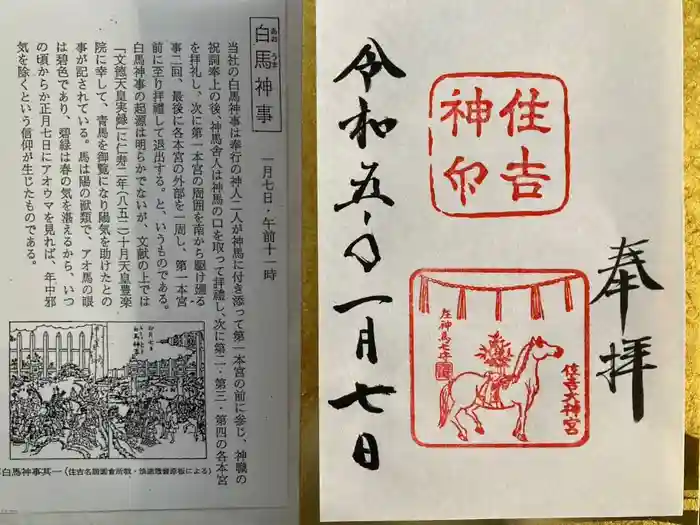 あおうま
白馬神事
一月七日・午前十一時
当社の白馬神事は奉行の神人二人が神馬に付き添って第一本宮の前に参じ、神職の
祝詞奉上の後、神馬舎人は神馬の口を取って拝禮し、次に第二・第三・第四の各本宮
を拝礼し、次に第一本宮の周囲を南から駆け廻る
事二回、最後に各本宮の外部を一周し、第一本宮
前に至り拝禮して退出する。と、いうものである。
白馬神事の起源は明らかでないが、文献の上では
「文徳天皇実録」に仁寿二年(八五二)十月天皇豊楽
院に幸して、青馬を御覧になり陽気を助けたとの
事が記されている。馬は陽の獣類で、アオ馬の眼
は碧色であり、碧緑は春の気を湛えるから、いつ
の頃からか正月七日にアオウマを見れば、年中邪
気を除くという信仰が生じたものである。
正月七日
白馬神事
白馬神事其一(住吉名勝図会所載・による)
奉拝
住吉
神印
住吉大神宮
令和五年一月七日